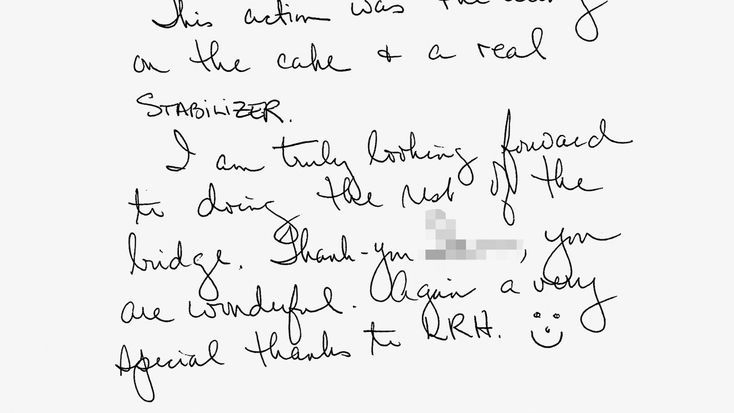 This action was the icing
on the cake & a real
STABILIZER.
I am truly looking forward
to doing the rest of the
bridge. Thank-you , you
are wonderful. Again a very
special thanks to LRH.